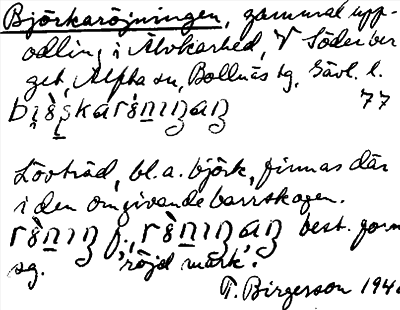 Björkaröjningen, gammal upp-
odling i Älvkarhed, V Söderber
get, Alfta sn, Bollnäs tg, Gävl. l.
77
Lövträd, bl. a. björk, finnas där
i den omgivande barrskogen.
f., best. form
sg. 'röjd mark'.
T. Birgerson 194